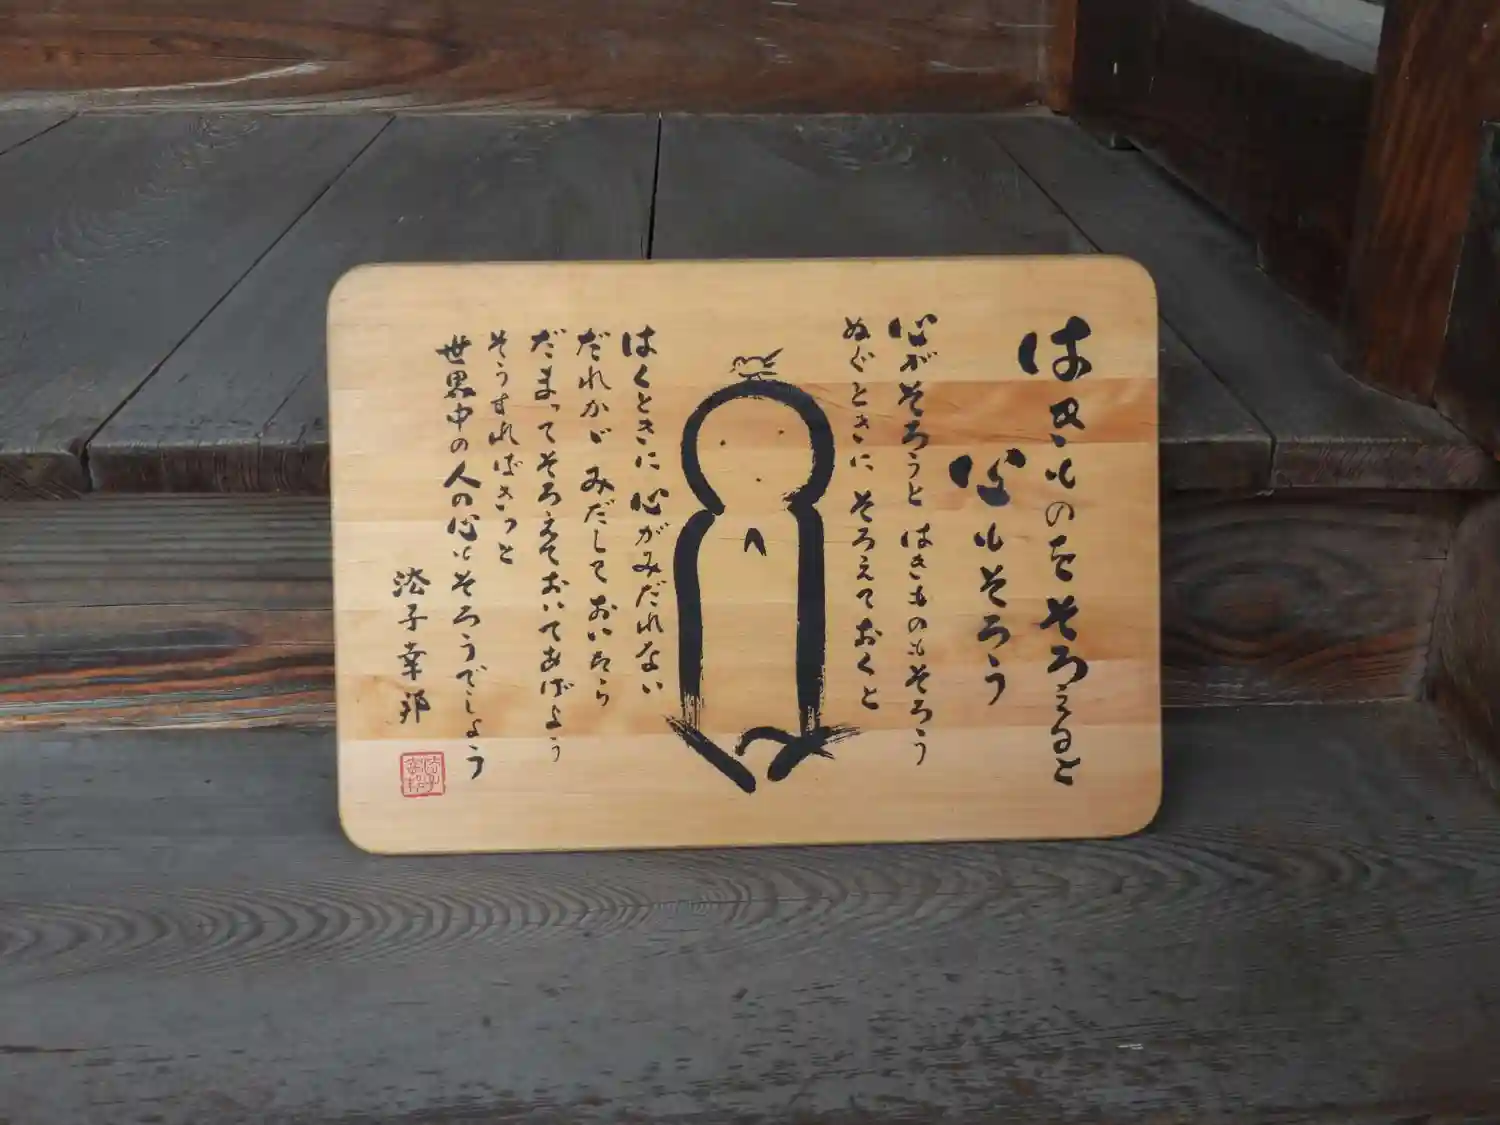 はきものをそろえると
心もそろう
心がそろうと はきものもそろう
ぬぐときに そろえておくと
はくときに 心がみだれない
だれかが みだして おいたら
だまって そろえて おいてあげよう
そうすればきっと
世界中の人の心もそろうでしょう
幸邦